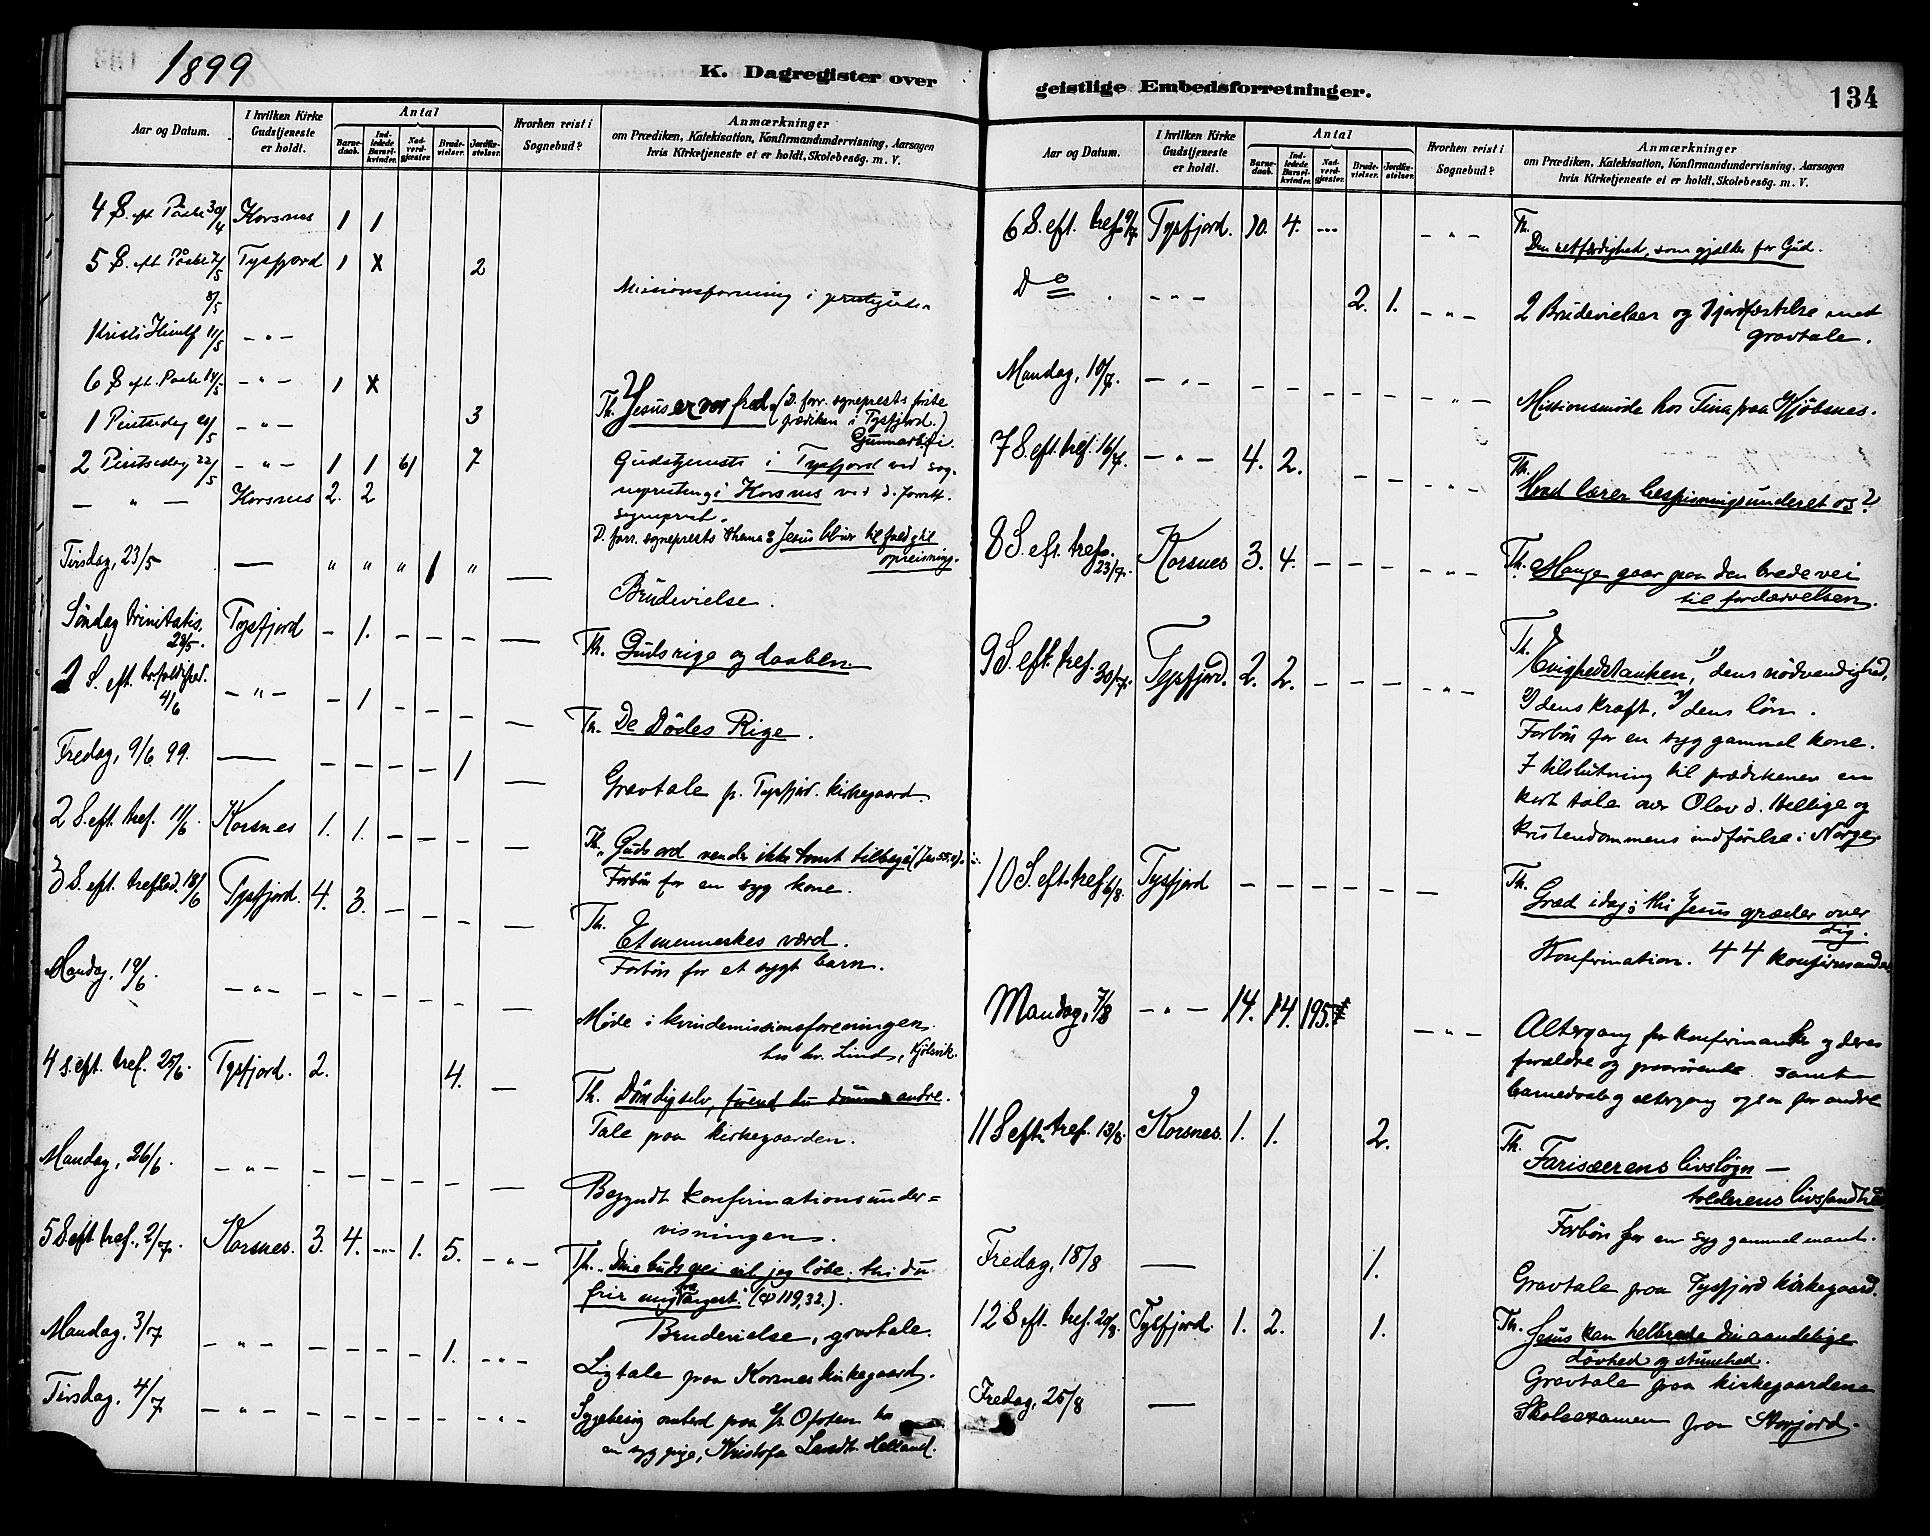 1899
K. Dagregister over
Aar og Datum.
I hvilken Kirke Gudstjeneste er holdt.
Antal
Barnedaab.
Indledede Barselkvinder.
Nadverdgjester.
Brudevielser.
Jordfæstelser.
Hvorhen reist i Sognebud?
Anmærkninger
om Prædiken, Katekisation, Konfirmandundervisning, Aarsagen
hvis Kirketjeneste ei er holdt, Skolebesøg. m. V.
4 S. eft Påske 30/4 Korsnes 1 1
5 S. eft Påske 7/5 Tysfjord 1 X 2
8/5 Missionsforening i
Kristi Himlf 11/5 - " -
6 S eft. Paske 14/5 - " - 1 X
1 Pintsedag 21/5 - " - 3 Th. Jesus er vor fred. (D. forr. sogneprests første
prædiken i Tysfjord.)
2 Pintsedag 22/5 - " - 1 1 61 7 Gudstjeneste i Tysfjord ved sog-
— " — Korsnes 2. 2 nepresten, i Korsnes ved d. forrett.
sogneprest.
D. forr. sogneprests thema: Jesus bliver til fald og til
opreisning.
Tirsdag, 23/5 — " " " 1 " — Brudevielse.
Søndag trinitatis. 28/5. Tysfjord - 1. - - - — Th. Guds rige og daaben
1 S. eft. trefoldighed. 4/6 - " - - 1 - - - — Th. De Dødes Rige.
Fredag, 9/6 99. — - - - - 1 — Gravtale p. Tysfjor. kirkegaard.
2 S. eft. tref. 11/6. Korsnes 1. 1. - - - — Th. "Guds ord vender ikke tomt tilbage" (Jes 55.
Forbøn for en syg kone.
3 S. eft. trefold. 18/6 Tysfjord. 4. 3. - - - — Th. Et menneskes værd.
Forbøn for et sygt barn.
Mandag, 19/6. - " - - - - - - — Møde i kvindemissionsforeningen
hos hr. Lind, Kjølsvik.
4 S. eft. tref. 25/6. Tysfjord. 2. 4. — Th. Døm dig selv, førend du dømme andre.
Tale paa kirkegaarden.
Mandag, 26/6. - " - - - - - - — Begyndt konfirmationsunder=
visningen.
5 S eft tref., 2/7. Korsnes. 3. 4. -"- 1. 5. - " - Th. "Dine buds vei vil jeg løbe; thi du
frir mig fra angest." (ψ 119,32.).
Brudevielse, gravtale.
Mandag. 3/7 - " - - - - - 1. - " - Ligtale paa Korsnes kirkegaard.
Tirsdag, 4/7 - " - - - - - - - " - Sygebesøg ombord paa s/s Ofoten hos
en syg pige, Kristofa Helland.
geistlige Embedsforretninger.
134
Aar og Datum.
I hvilken Kirke Gudstjeneste er holdt.
Antal
Barnedaab.
Indledede Barselkvinder.
Nadverdgjester.
Brudevielser.
Jordfæstelser.
Hvorhen reist i Sognebud?
Anmærkninger
om Prædiken, Katekisation, Konfirmandundervisning, Aarsagen
hvis Kirketjeneste ei er holdt, Skolebesøg. m. V.
6 S. eft. tref. 9/7. Tysfjord. 10. 4. -"- - " - Th. Den retfærdighed, som gjælder for Gud.
Do - " - 2. 1. - " - 2 Brudevielser og 1 jordfæstelse med
gravtale.
Mandag, 10/7. - " - - - - - - - " - Missionsmøde hos Tina paa
7 S. eft. tref. 16/7. - " - 4. 2. - - - - " - Th. Hvad lærer bespisningsunderet os?
8 S. eft. tref. 23/7. Korsnes 3. 4. - - - - " - Th. Mange gaar paa den brede vei
til fordærvelsen.
9 S. eft. tref. 30/7. Tysfjord. 2. 2. - - - - " - Th. Evighedstanken, 1) dens nødvendighed,
2) dens kraft, 3) dens løn.
Forbøn for en syg gammel kone.
I tilslutning til prædikenen en
kort tale over Olav d. Hellige og
kristendommens indførelse i Norge.
10 S. eft. tref. 6/8. Tysfjord - - - - - — Th. Græd idag; thi Jesus græder over
dig.
Konfirmation. 44 konfirmander
Mandag, 7/8 - " - 14. 14. 195. - " - Altergang for konfirmander og deres
forældre og paarørende samt
barnedaab og altergang ogsaa for andre
11 S eft. tref. 13/8. Korsnes. 1. 1. 2. Th. Farisæerens livsløgn —
tolderens livssandhed
Forbøn for en syg gammel mand.
Fredag, 18/8 — 1. Gravtale paa Tysfjord kirkegaard.
12 S eft. tref. 20/8. Tysfjord. 1. 2. 1. Th. Jesus kan helbrede din aandelige
døvhed og stumhed.
Gravtale paa kirkegaarden
Fredag, 25/8 — Skoleexamen paa Storjord.